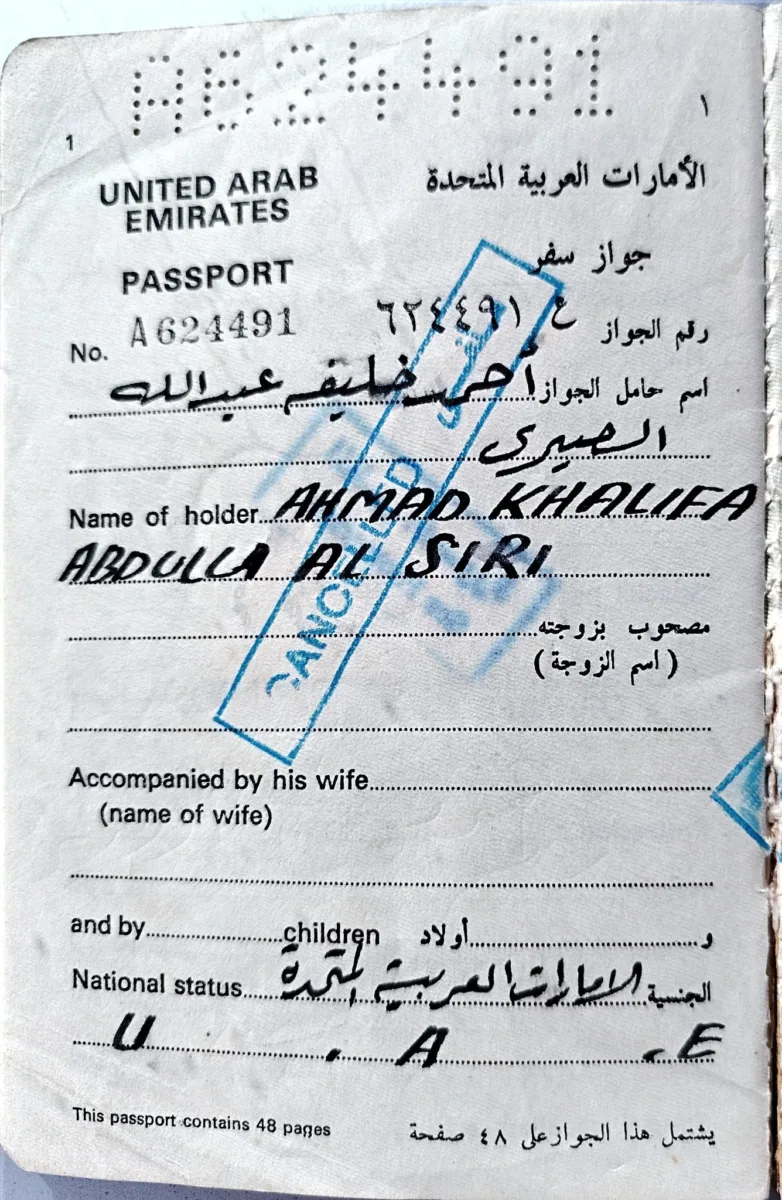 A624491
1 ١
UNITED ARAB
EMIRATES
الأمارات العربية المتحدة
PASSPORT
جواز سفر
No. A624491
رقم الجواز ع ٦٢٤٤٩١
اسم حامل الجواز أحمد خليفه عبدالله
Name of holder AHMAD KHALIFA
ABDULLA AL SIRI
CANCELLED
مصحوب بزوجته
(اسم الزوجة)
Accompanied by his wife
(name of wife)
and by children
و أولاد
National status
الجنسية الامارات العربية المتحدة
U . A . E
This passport contains 48 pages
يشتمل هذا الجواز على ٤٨ صفحة